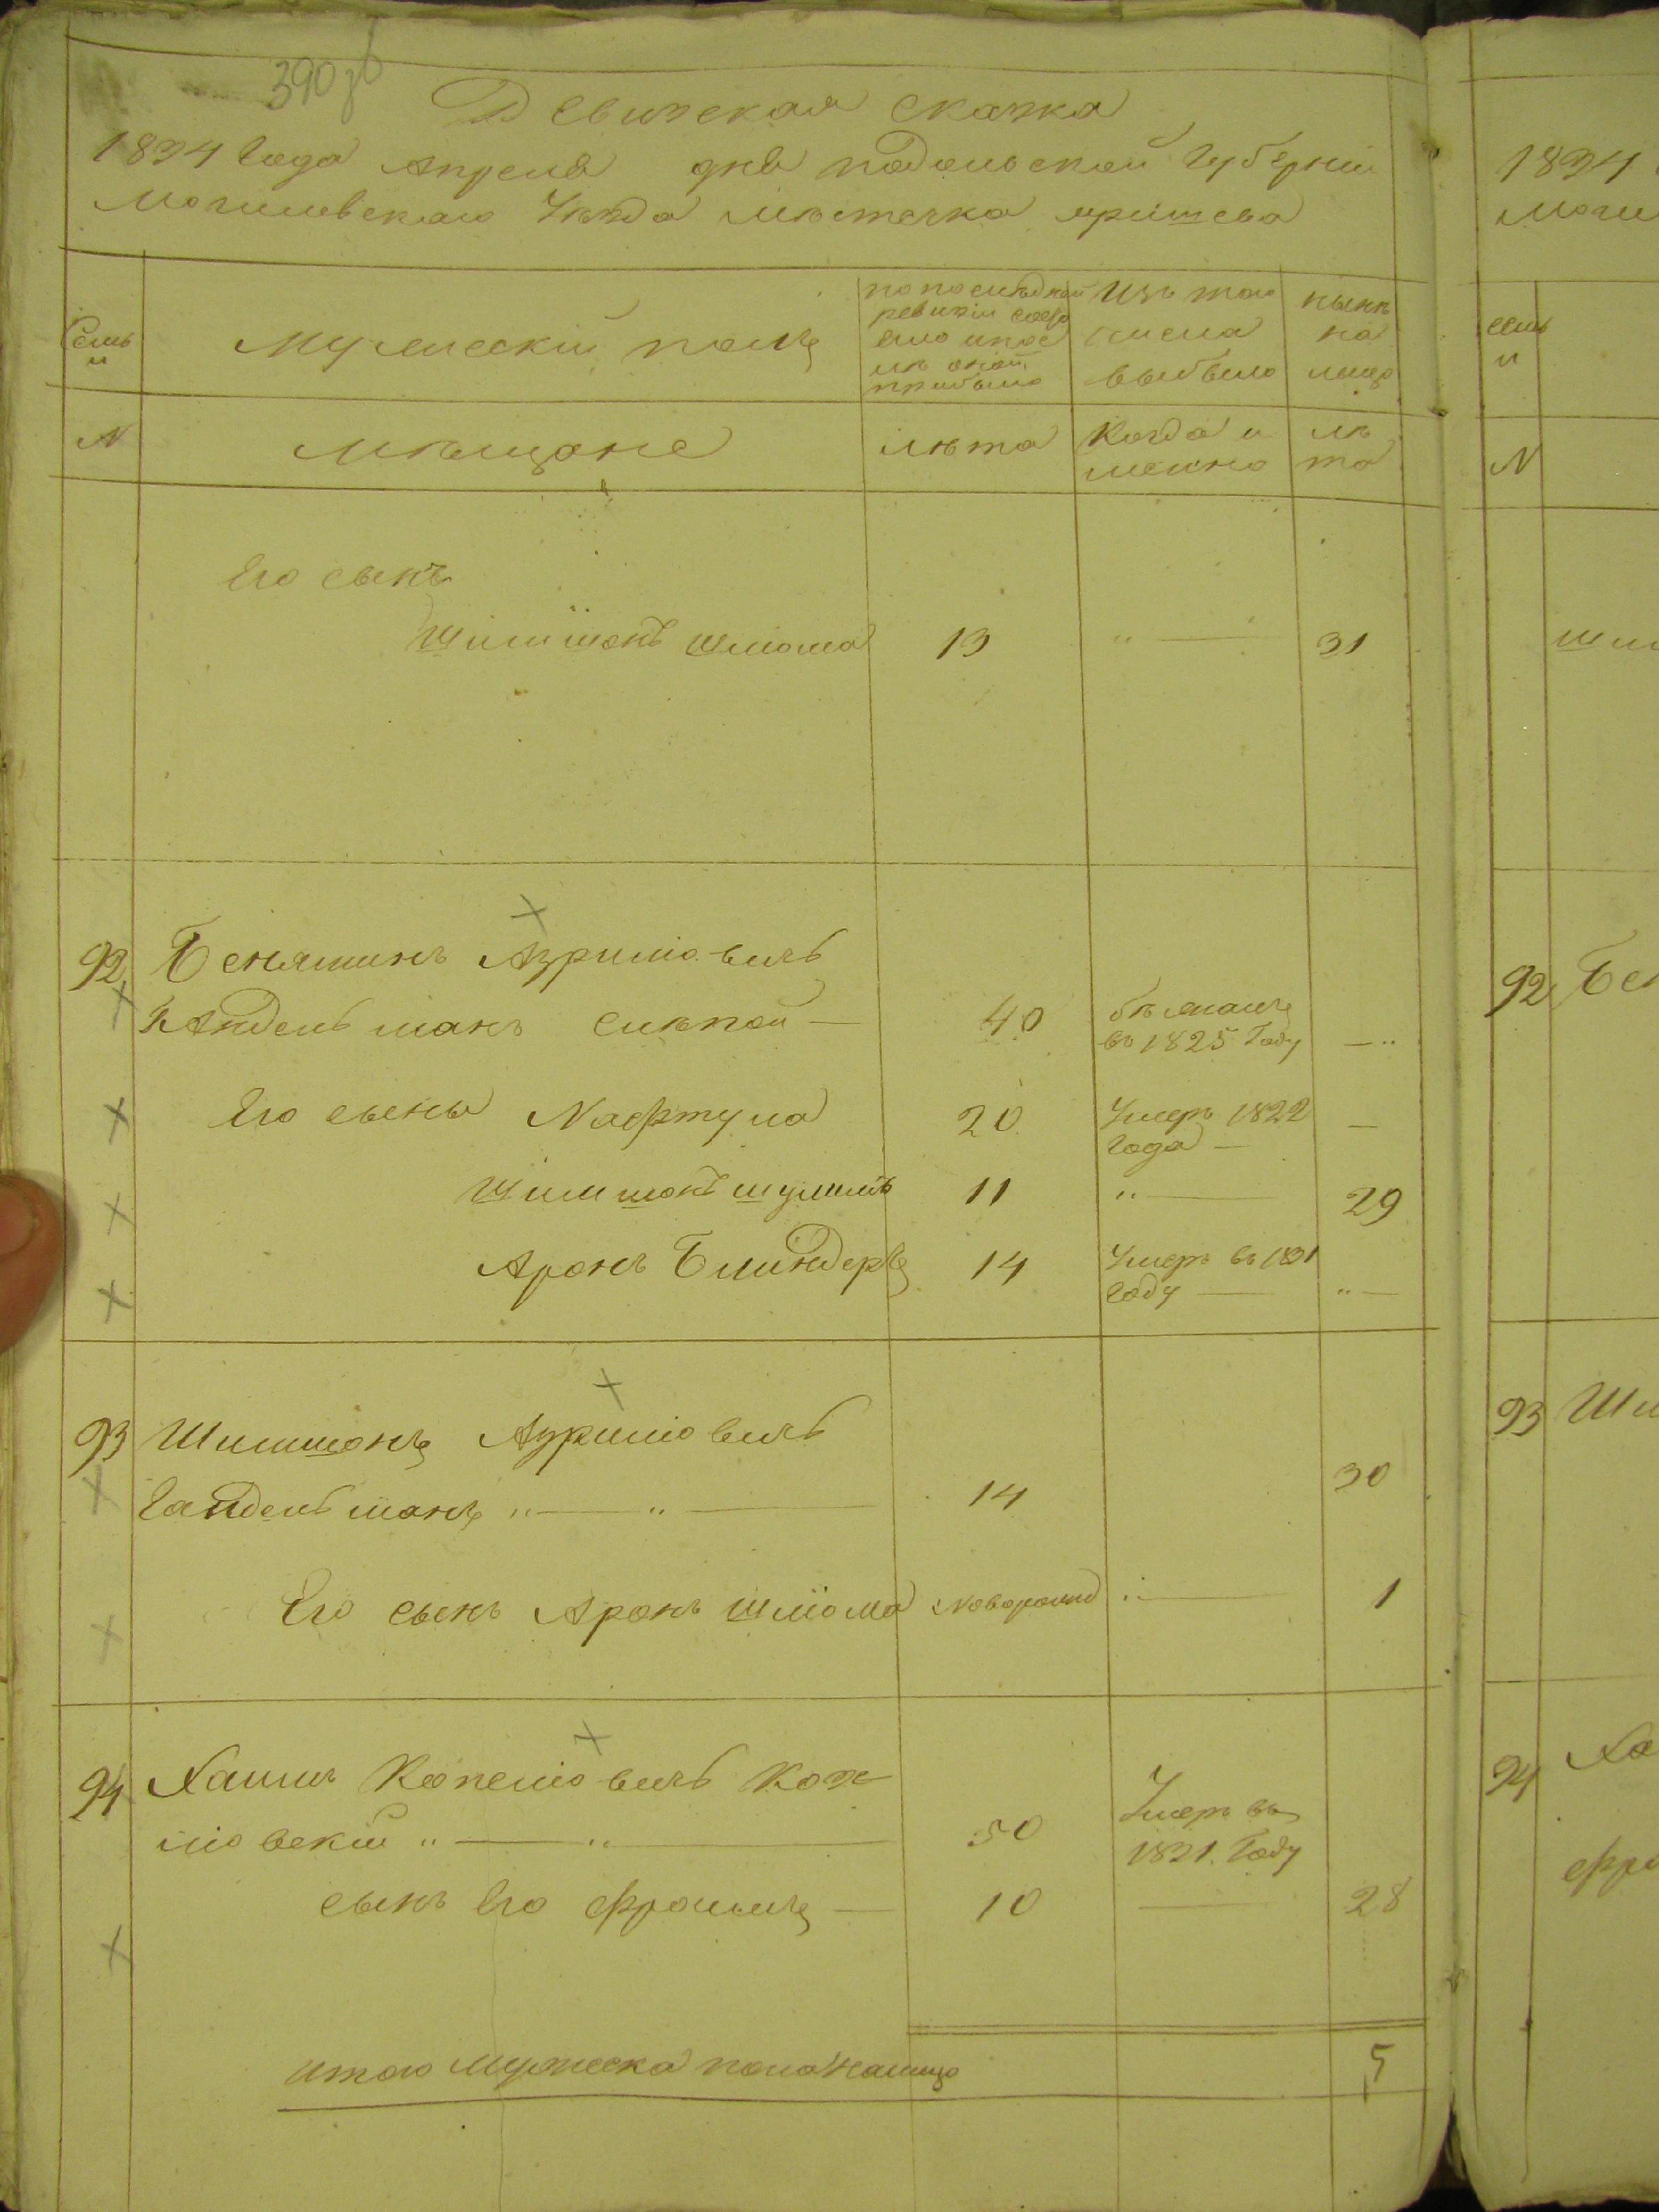 390об
Ревизская сказка
1834 Года Апреля дня подольской Губернии
Могилевскаго Уезда местечка
Семьи
Мужескій полъ
по последней ревизіи состояло и после оной прибыло
Изъ того числа выбыло
ныне на лицо
N
мещане
лета
Когда именно
лета
Его сынъ
Шимшонъ Шлiома 13 " — 31
92 Беняминъ Азрилiовичъ
Гандельманъ слепой — 40 бежалъ въ 1825 Году — "
Его сыны Нафтула 20 Умеръ 1822 Года — —
Шимшонъ шулимъ 11 " — 29
Аронъ Блиндеръ 14 Умеръ въ 1831 Году — " —
93 Шимшонъ Азрилiовичъ
Гандельманъ " — " — 14 30
Его сынъ Аронъ Шлiома Новорожд " — 1
94 Хаимъ Копелiовичъ Коз
ловскiй " — " — 50 Умеръ въ 1821. Году
сынъ Его Фроимъ — 10 — 28
Итого мужеска пола налицо 5
1834
Моги
Семьи
N
Шим
92 Бен
93 Ши
94 Ха
Фро